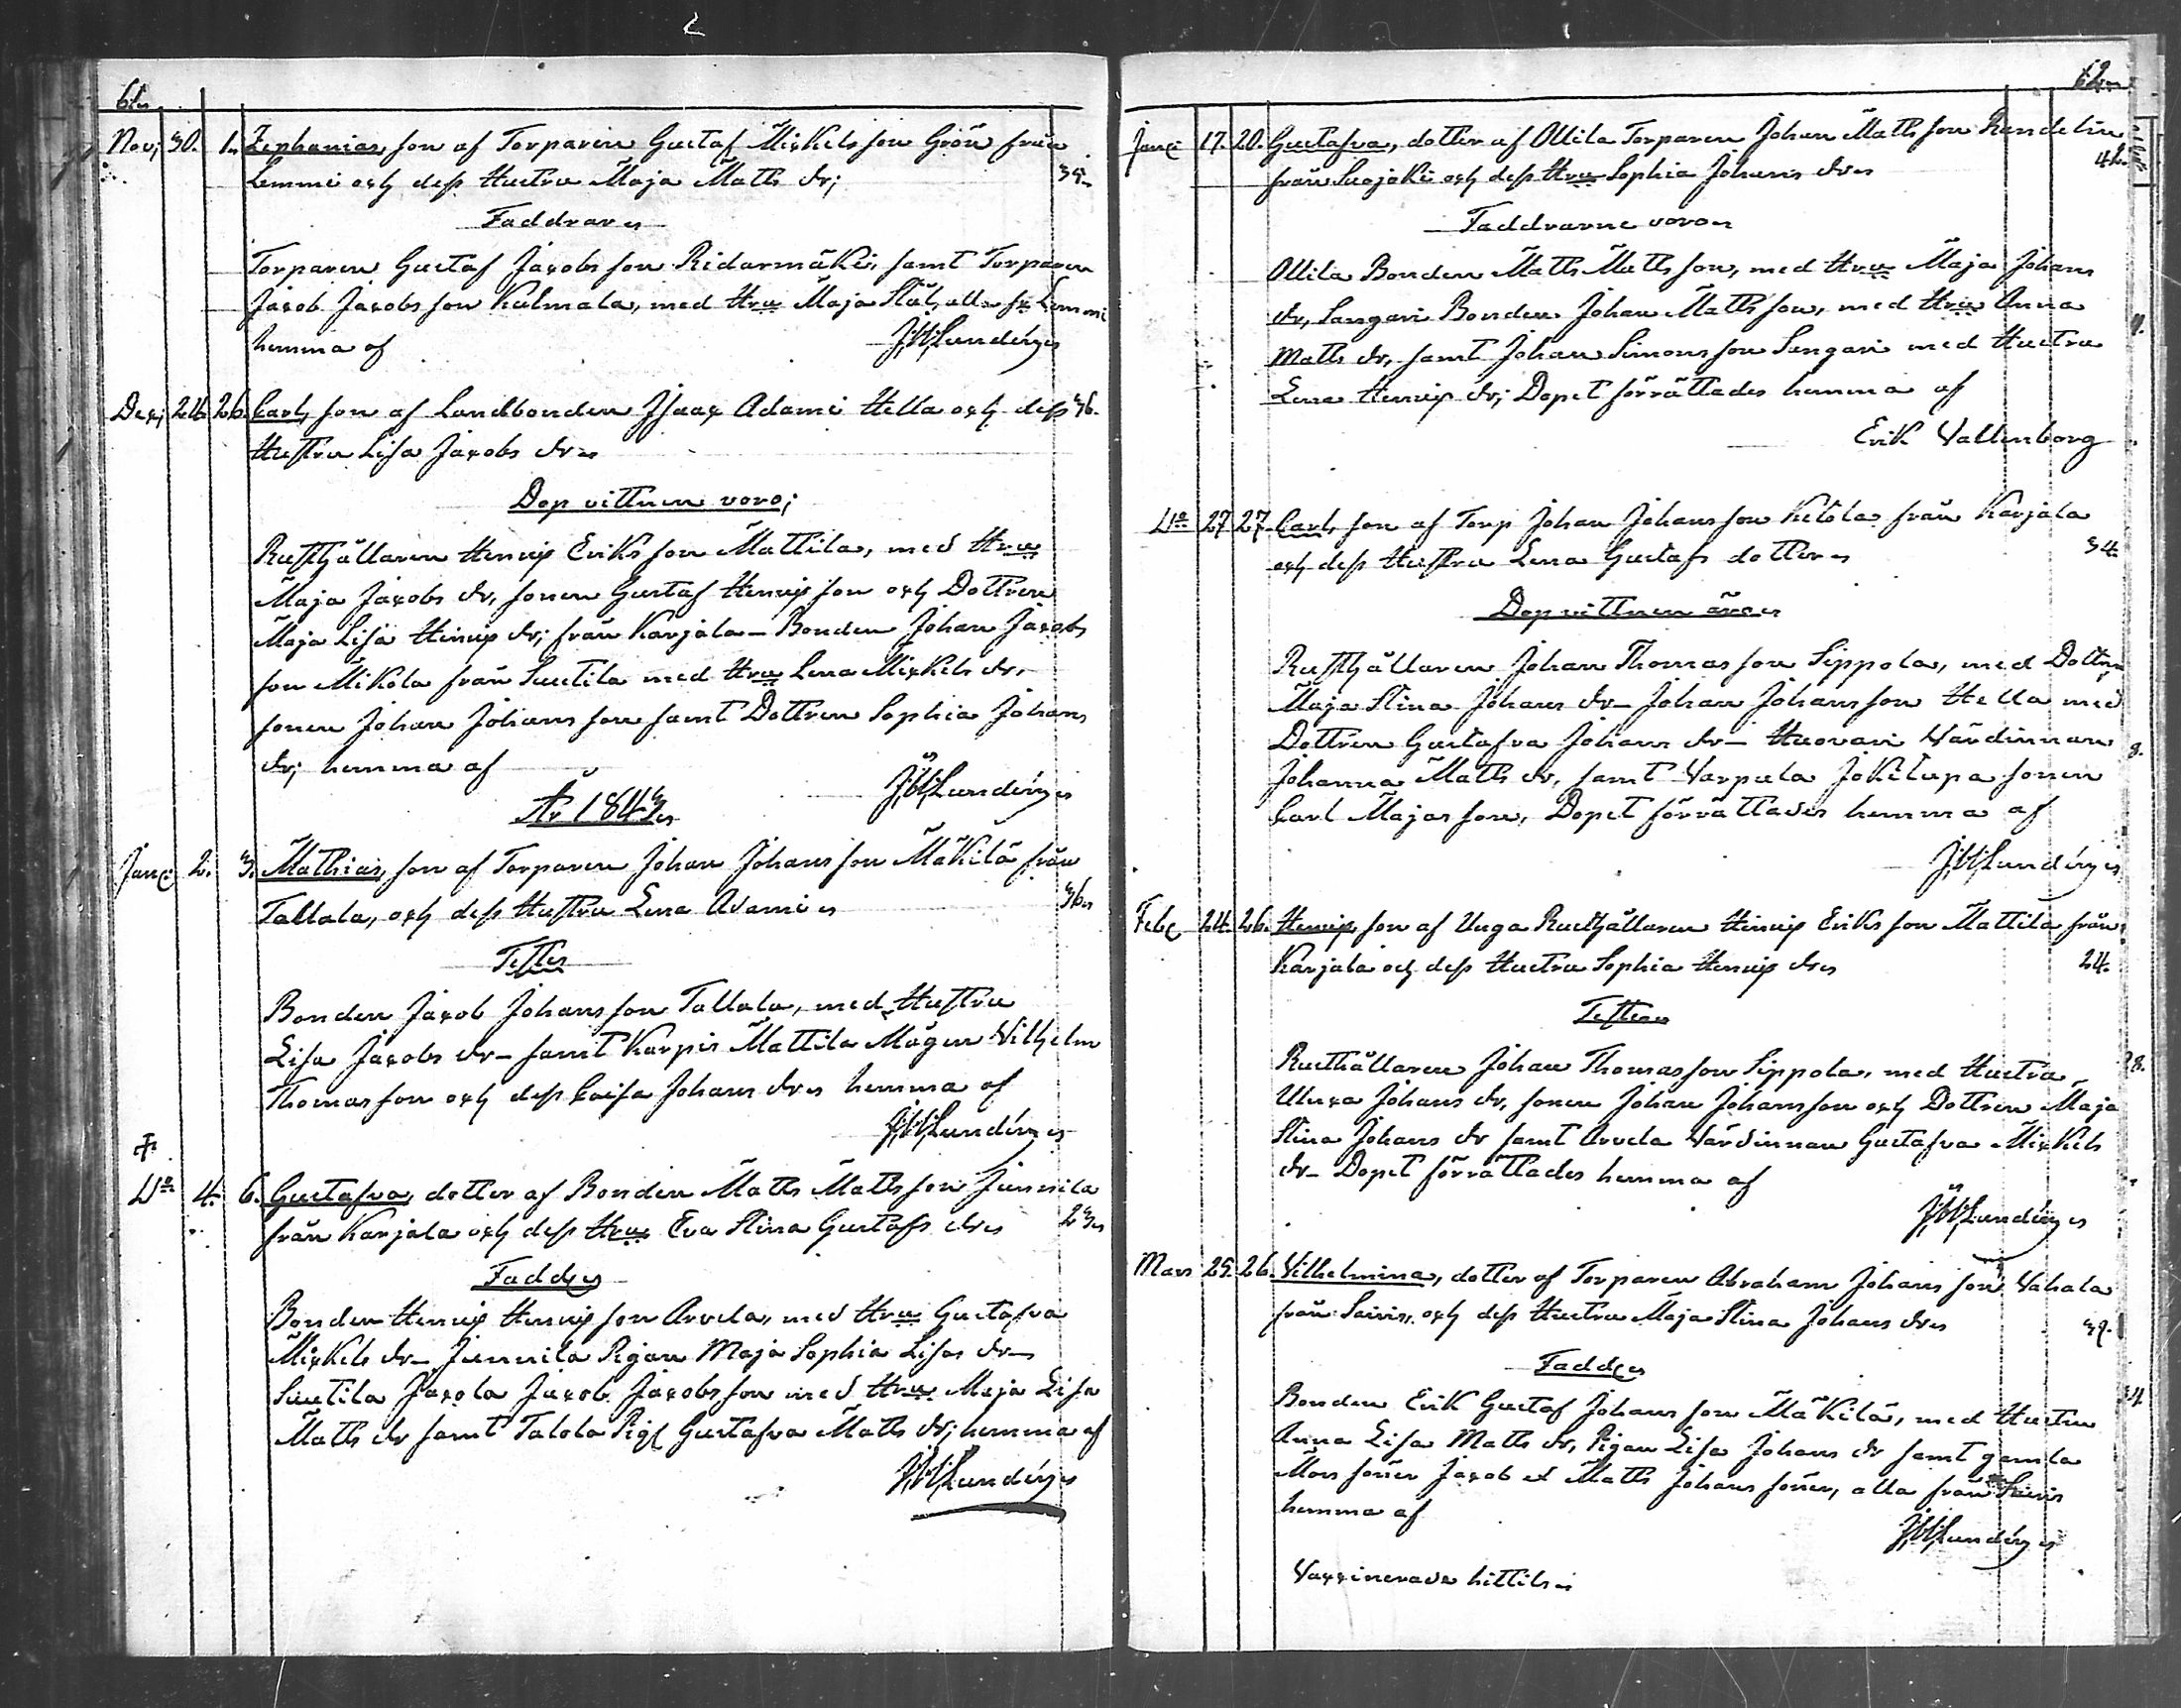 61.
Nov; 30. 1. Zephanias, son af Torparen Gustaf Mickelsson Grön från
Lemmi och dess Hustru Maja Matts dr; 34.
Faddrar
Torparen Gustaf Jacobsson Ridarmäki, samt Torparen
Jacob Jacobsson Kulmala, med Hru Maja alla fr Lemmi
hemma af JWLundén
Dec; 24. 26. Carl, son af Landbonden Isaac Adami Hella och dess 36.
Hustru Lisa Jacobs dr
Dop vittnen voro;
Rusthållaren Henric Eriksson Mattila, med Hru
Maja Jacobs dr, sonen Gustaf Henricsson och Dottren
Maja Lisa Henrics dr; från Karjala – Bonden Johan Jacobs
son Mikola från Suutila med Hru Lena Mickels dr,
sonen Johan Johansson samt Dottren Sophia Johans
dr; hemma af JWLundén
År 1843
Janr 2. 3. Mathias, son af Torparen Johan Johansson Mäkilä från
Tallala, och dess Hustru Lena Adami 36
Testes
Bonden Jacob Johansson Tallala, med Hustru
Lisa Jacobs dr – samt Karpis Mattila Mågen Vilhelm
Thomasson och dess Caisa Johans dr hemma af
JWLundén
Do 4. 6. Gustafva, dotter af Bonden Matts Mattsson Junnila
från Karjala och dess Hru Eva Stina Gustafs dr 23
Fadd
Bonden Henric Henricsson Arvela, med Hru Gustafva
Mickels dr – Junnila Pigan Maja Sophia Lisas dr –
Suutila Jacola Jacob Jacobsson med Hru Maja Lisa
Matts dr samt Talola Pig Gustafva Matts dr; hemma af
JWLundén
62
Janr 17. 20. Gustafva, dotter af Ollila Torparen Johan Mattsson Randelin
från Suojoki och dess Hru Sophia Johans dr 42.
Faddrarne voro
Ollila Bonden Matts Mattsson, med Hru Maja Johans
dr, Sangari Bonden Johan Mattsson, med Hru Anna
Matts dr, samt Johan Simonsson Sangari med Hustru
Lena Henrics dr; Dopet förrättades hemma af
Erik Vallenborg
Do 27 27. Carl, son af Torp Johan Johansson Ketola från Karjala
och dess Hustru Lena Gustafs dotter 34
Dop vittnen äro
Rusthållaren Johan Thomasson Sippola, med Dottren
Maja Stina Johans dr – Johan Johansson Hella med
Dottren Gustafva Johans dr – Huovari Värdinnan
Johanna Matts dr, samt Varpula Jokitupa sonen
Carl Majasson, Dopet förrättades hemma af
JWLundén
Feb 24. 26. Henric, son af Unga Rusthållaren Henric Eriksson Mattila från
Karjala och dess Hustru Sophia Henrics dr 24.
Testes
Rusthållaren Johan Thomasson Sippola, med Hustru
Ulrica Johans dr, sonen Johan Johansson och Dottren Maja
Stina Johans dr samt Arvela Värdinnan Gustafva Mickels
dr – Dopet förrättades hemma af
JWLundén
Mars 25. 26. Vilhelmina, dotter af Torparen Abraham Johansson Vahala
från Sairis, och dess Hustru Maja Stina Johans dr 39.
Fadd
Bonden Erik Gustaf Johansson Mäkilä, med Hustru
Anna Lisa Matts dr, Pigan Lisa Johans dr samt gamla
Mors söner Jacob et Matts Johans söner, alla från Sairis
hemma af
JWLundén
Vaccinerade hittils